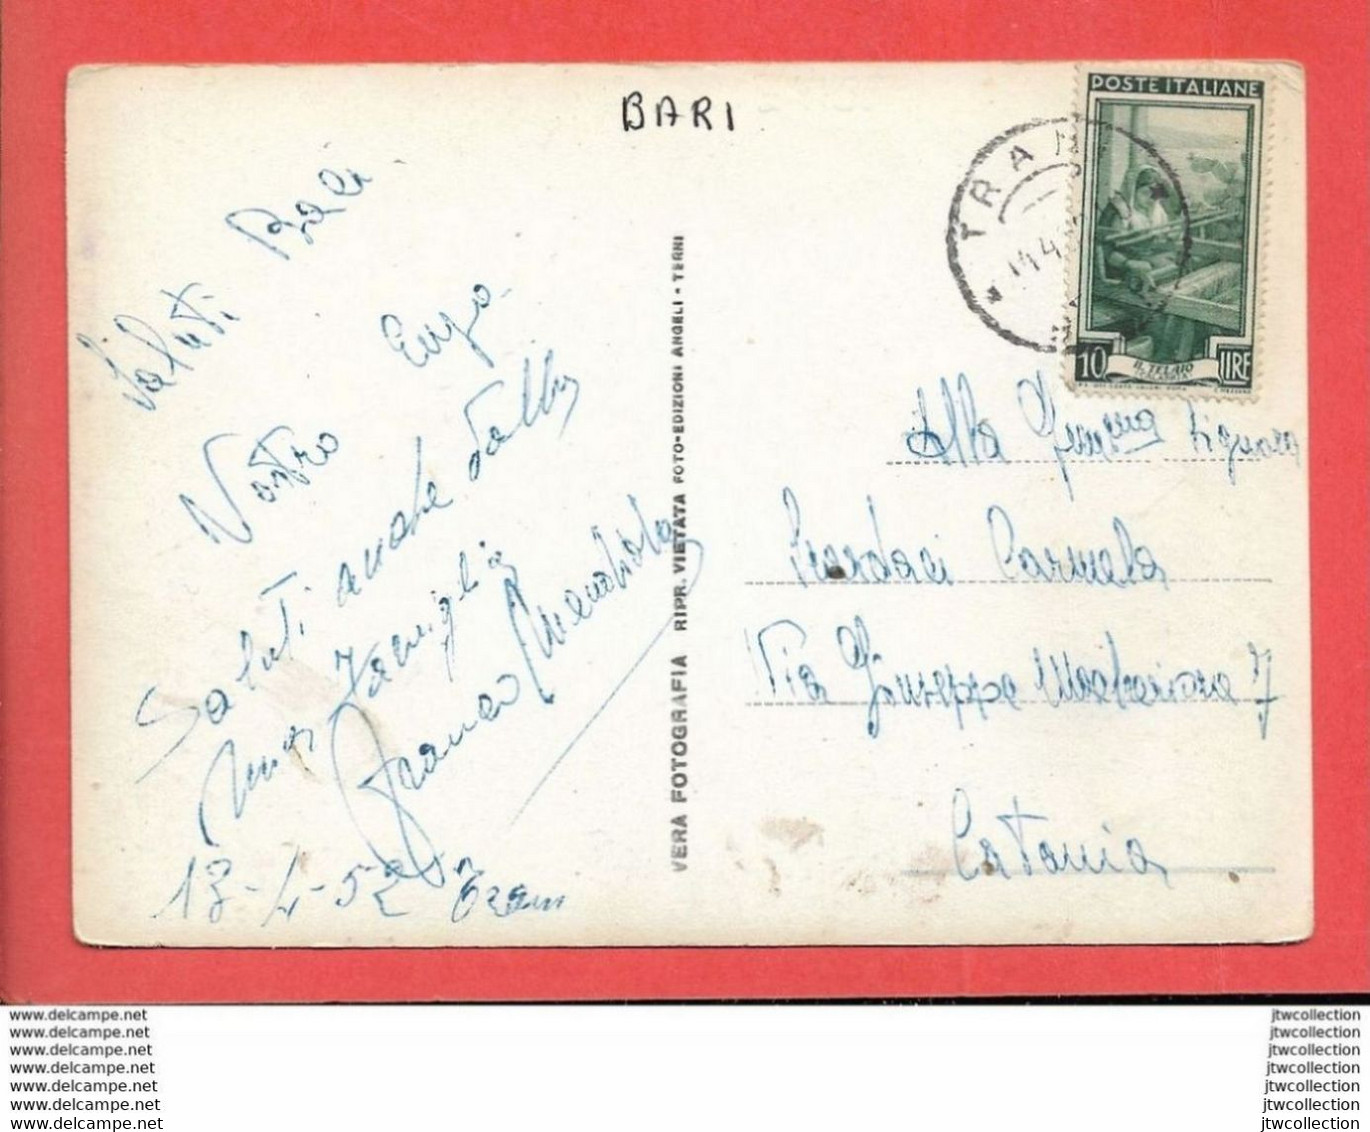 BARI
POSTE ITALIANE
TRANI
10 LIRE
IL TELAIO
Saluti Baci
Vostro Enzo
Saluti anche dalla
mia famiglia
Franco
13-4-52 Trani
VERA FOTOGRAFIA RIPR. VIETATA FOTO-EDIZIONI ANGELI - TERNI
Alla Signora
Carmela
Via Giuseppe 7
Catania
www.delcampe.net
www.delcampe.net
www.delcampe.net
www.delcampe.net
www.delcampe.net
www.delcampe.net
www.delcampe.net
jtwcollection
jtwcollection
jtwcollection
jtwcollection
jtwcollection
jtwcollection
jtwcollection